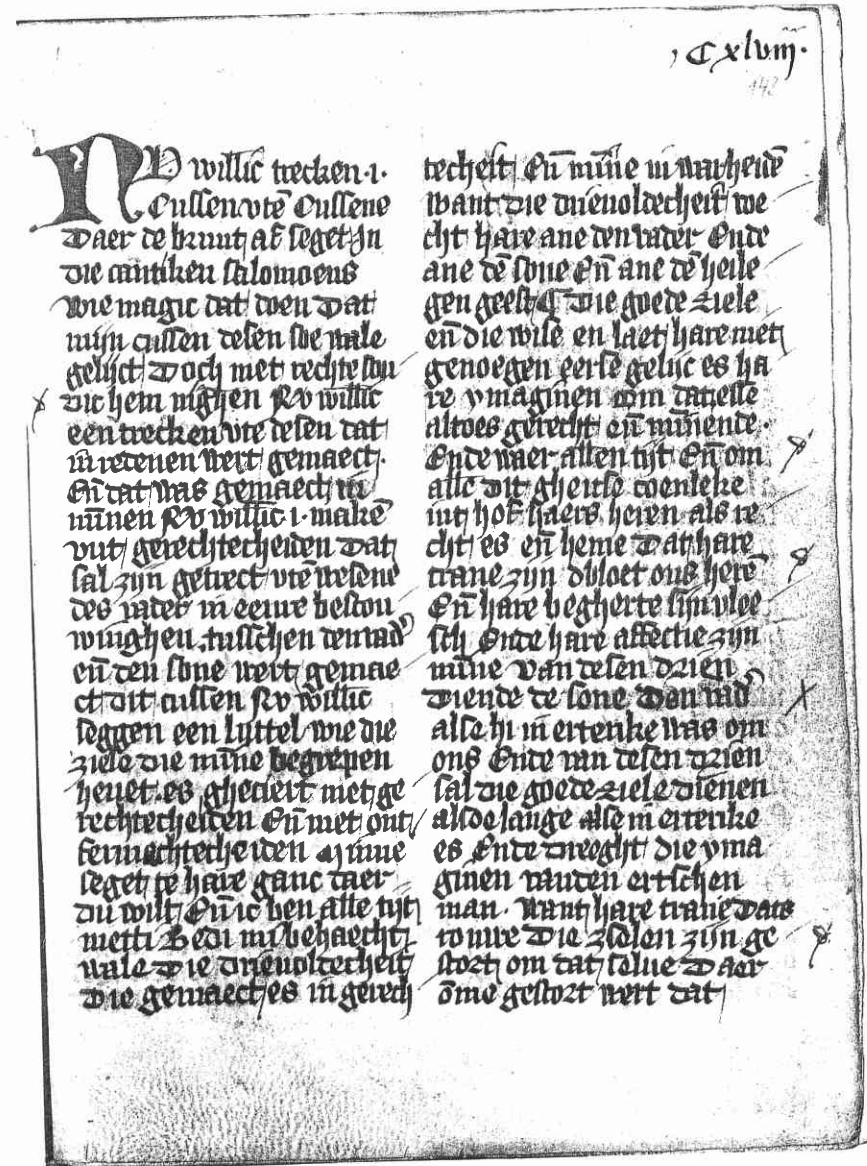 , C xlviij.
142
NV willic trecken .i.
Cussen vtē Cussene
Daer de bruut af seget In
die cantiken salomoens
wie magic dat doen Dat
mijn cussen desen soe wale
gelijct Doch met rechte sou
dic hem nighen Nv willic
een trecken vte desen dat
in redenen wert gemaect.
Eñ dat was gemaect in
mīnen Nv willic .i. makē
vut gerechtecheiden Dat
sal zijn getrect vtē wesene
des vader in eenre bescou
winghen tusschen den vad'
eñ den sone wert gemae
ct dit cussen Nv willic
seggen een luttel wie die
ziele die mīne begrepen
heuet es gheciert met ge
rechtecheiden Eñ met ont
fermechtecheiden Minne
seget te hare ganc daer
du wilt Eñ ic ben alle tijt
metti Bedi mi behaecht
wale Die drieuoldecheit
Die gemaect es in gerech
techeit Eñ mīne in warheidē
want die drieuoldecheit we
cht hare ane den vader Ende
ane dē sone Eñ ane dē heile
gen geest Die goede ziele
eñ die wise en laet hare niet
genoegen eerse gelijc es ha
re ymaginen om datt esse
altoes gerecht eñ mīnende.
Ende waer allen tijt Eñ om
alle dit gheerse coenleke
int hof haers heren als re
cht es eñ heme Dat hare
trane zijn dbloet ons herē
Eñ hare begherte sijn vlee
sch Ende hare affectie zijn
mīne Van desen drien
Diende de sone Den vad'
alse hi in ertrike was om
ons Ende van desen drien
sal die goede ziele dienen
alsoe lange alse in ertrike
es Ende dreeght die yma
ginen vanden ertschen
man. Want hare trane Dats
rouwe Die zielen zijn ge
stort om dat selue Daer
ōme gestort wert dat